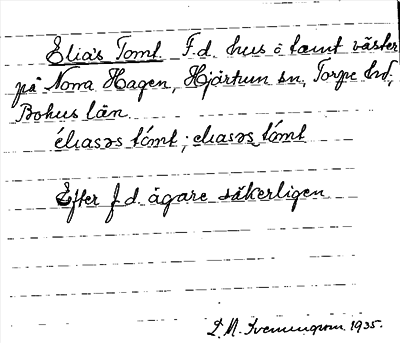 Elias Tomt. F.d. hus o tomt väster
på Norra Hagen, Hjärtum sn, Torpe hd,
Bohus län.
éliasəs tómt; eliasəs tómt
Efter f.d. ägare säkerligen
1935.